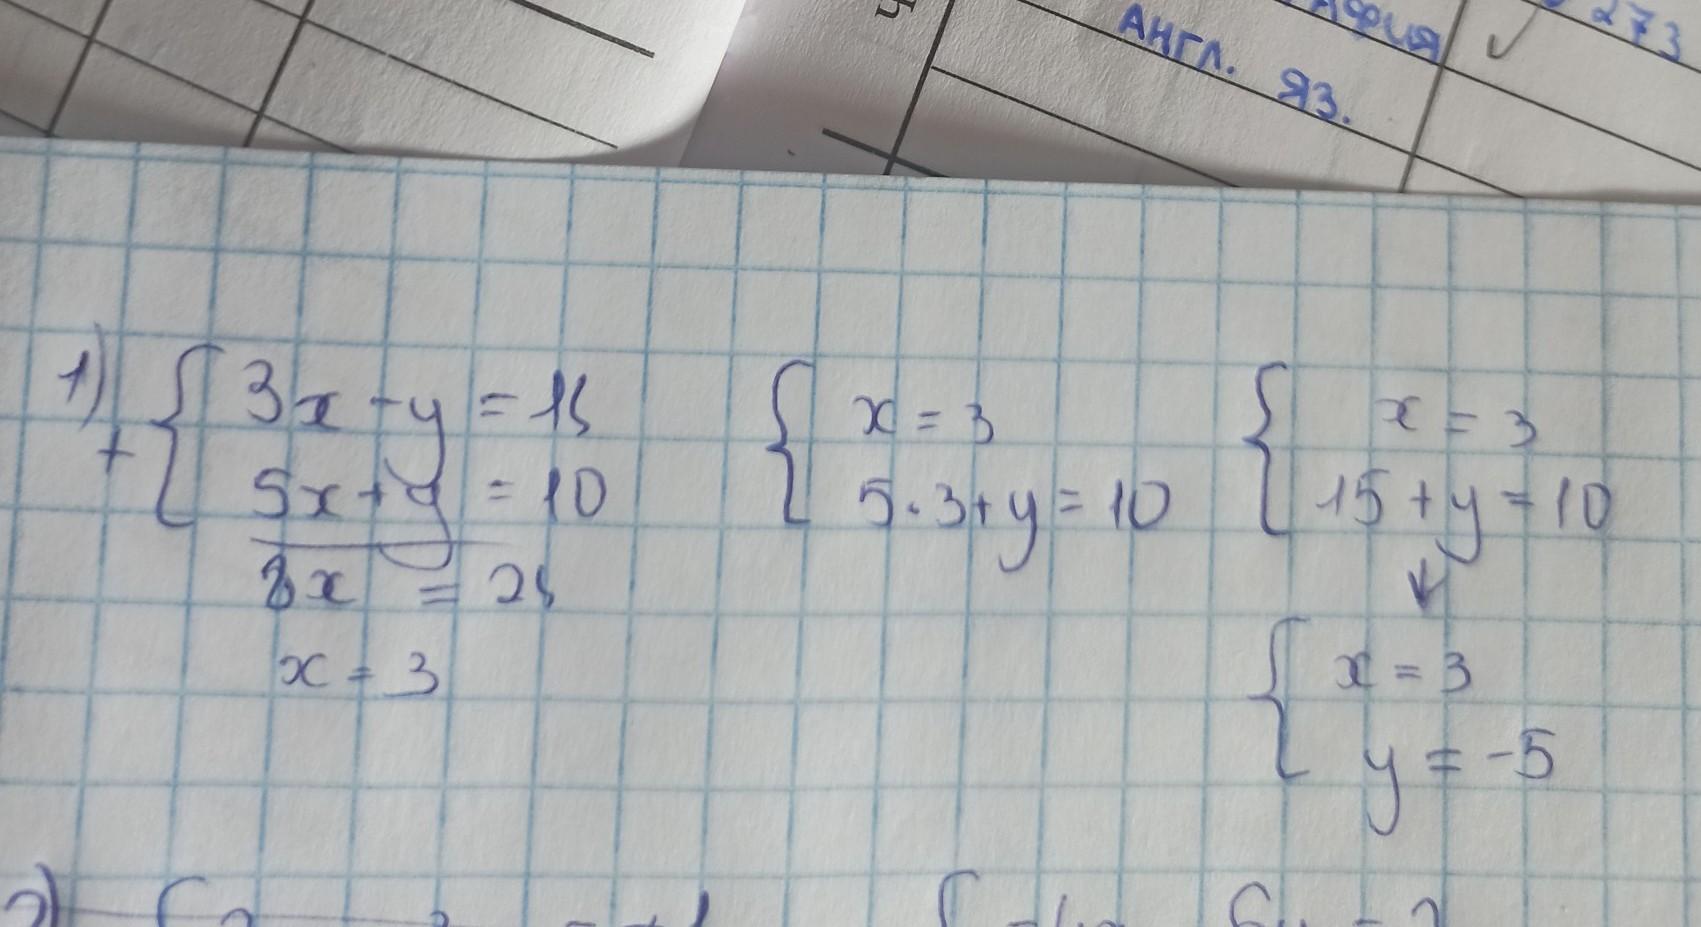 Англ. яз.
✓
273
1)
+ { 3x - y = 14
5x + y = 10
8x = 24
x = 3
{ x = 3
5·3 + y = 10
{ x = 3
15 + y = 10
↙
{ x = 3
y = -5
2)